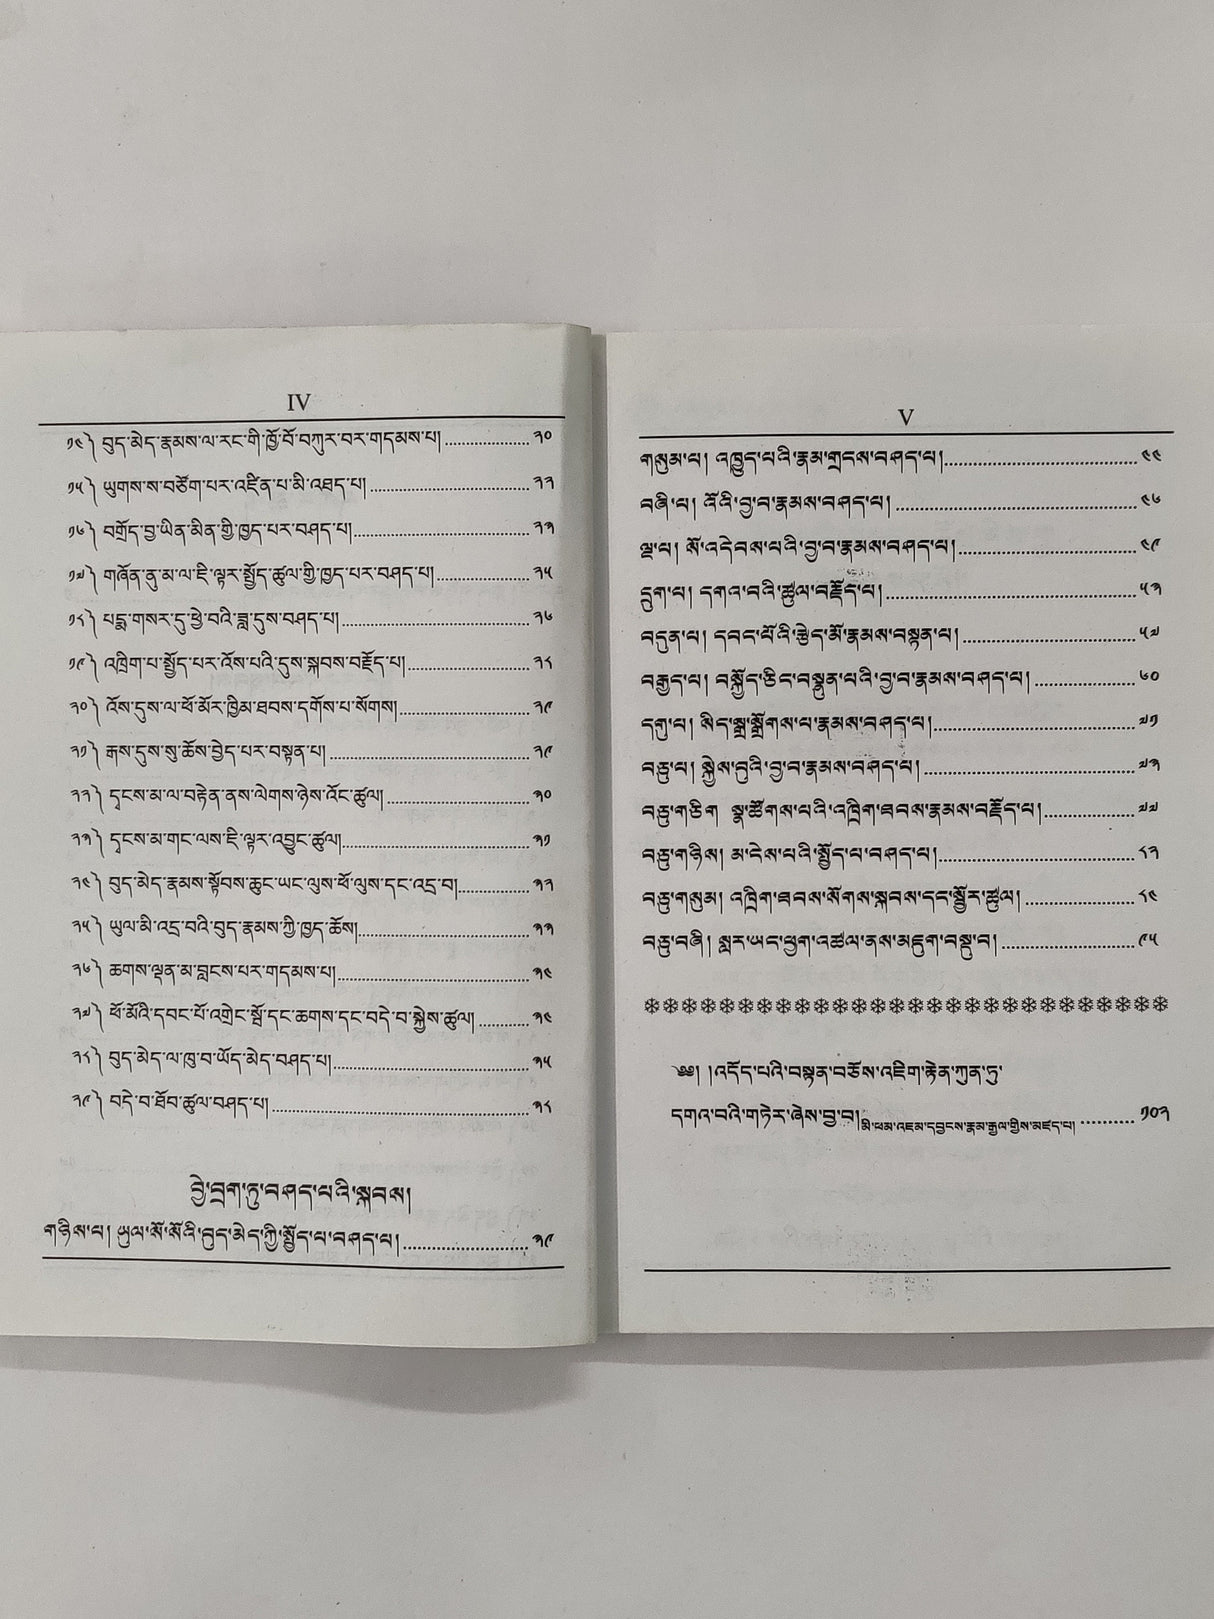 IV
༡༤༽ བུད་མེད་རྣམས་ལ་རང་གི་ཁྱོ་བོ་བཀུར་བར་གདམས་པ། ༢༠
༡༥༽ ཡུགས་ས་བཙོག་པར་འཛིན་པ་མི་འཐད་པ། ༢༢
༡༦༽ བགྲོད་བྱ་ཡིན་མིན་གྱི་ཁྱད་པར་བཤད་པ། ༢༣
༡༧༽ གཞོན་ནུ་མ་ལ་ཇི་ལྟར་སྤྱོད་ཚུལ་གྱི་ཁྱད་པར་བཤད་པ། ༢༥
༡༨༽ པདྨ་གསར་དུ་ཕྱེ་བའི་ཟླ་དུས་བཤད་པ། ༢༦
༡༩༽ འཁྲིག་པ་སྤྱོད་པར་འོས་པའི་དུས་སྐབས་བརྗོད་པ། ༢༨
༢༠༽ འོས་དུས་ལ་ཕོ་མོར་ཁྱིམ་ཐབས་དགོས་པ་སོགས། ༢༩
༢༡༽ རྒས་དུས་སུ་ཆོས་བྱེད་པར་བསྟན་པ། ༢༩
༢༢༽ དྭངས་མ་ལ་བརྟེན་ནས་ལེགས་ཉེས་འོང་ཚུལ། ༣༠
༢༣༽ དྭངས་མ་གང་ལས་ཇི་ལྟར་འབྱུང་ཚུལ། ༣༡
༢༤༽ བུད་མེད་རྣམས་སྟོབས་ཆུང་ཡང་ལུས་ཕོ་ལུས་དང་འདྲ་བ། ༣༢
༢༥༽ ཡུལ་མི་འདྲ་བའི་བུད་རྣམས་ཀྱི་ཁྱད་ཆོས། ༣༣
༢༦༽ ཆགས་ལྡན་མ་བླངས་པར་གདམས་པ། ༣༤
༢༧༽ ཕོ་མོའི་དབང་པོ་འགྲེང་སྦོ་དང་ཆགས་དང་བདེ་བ་སྐྱེས་ཚུལ། ༣༤
༢༨༽ བུད་མེད་ལ་ཁུ་བ་ཡོད་མེད་བཤད་པ། ༣༥
༢༩༽ བདེ་བ་ཐོབ་ཚུལ་བཤད་པ། ༣༨
བྱེ་བྲག་ཏུ་བཤད་པའི་སྐབས།
གཉིས་པ། ཡུལ་སོ་སོའི་བུད་མེད་ཀྱི་སྤྱོད་པ་བཤད་པ། ༣༩
V
གསུམ་པ། འཁྱུད་པའི་རྣམ་གྲངས་བཤད་པ། ༤༤
བཞི་པ། འོའི་བྱ་བ་རྣམས་བཤད་པ། ༤༦
ལྔ་པ། སོ་འདེབས་པའི་བྱ་བ་རྣམས་བཤད་པ། ༤༩
དྲུག་པ། དགའ་བའི་ཚུལ་བརྗོད་པ། ༥༣
བདུན་པ། དབང་པོའི་རྩེད་མོ་རྣམས་བསྟན་པ། ༥༧
བརྒྱད་པ། བསྐྱོད་ཅིང་བསྟུན་པའི་བྱ་བ་རྣམས་བཤད་པ། ༦༠
དགུ་པ། སིད་སྒྲ་སྒྲོགས་པ་རྣམས་བཤད་པ། ༧༡
བཅུ་པ། སྐྱེས་བུའི་བྱ་བ་རྣམས་བཤད་པ། ༧༣
བཅུ་གཅིག སྣ་ཚོགས་པའི་འཁྲིག་ཐབས་རྣམས་བརྗོད་པ། ༧༧
བཅུ་གཉིས། མ་ངེས་པའི་སྤྱོད་པ་བཤད་པ། ༨༢
བཅུ་གསུམ། འཁྲིག་ཐབས་སོགས་སྐབས་དང་སྦྱོར་ཚུལ། ༨༤
བཅུ་བཞི། སླར་ཡང་ཕྱག་འཚལ་ནས་མཇུག་བསྡུ་བ། ༩༥
༄༅། །འདོད་པའི་བསྟན་བཅོས་འཇིག་རྟེན་ཀུན་ཏུ་
དགའ་བའི་གཏེར་ཞེས་བྱ་བ། མི་ཕམ་འཇམ་དབྱངས་རྣམ་རྒྱལ་གྱིས་མཛད་པ། ༡༠༢